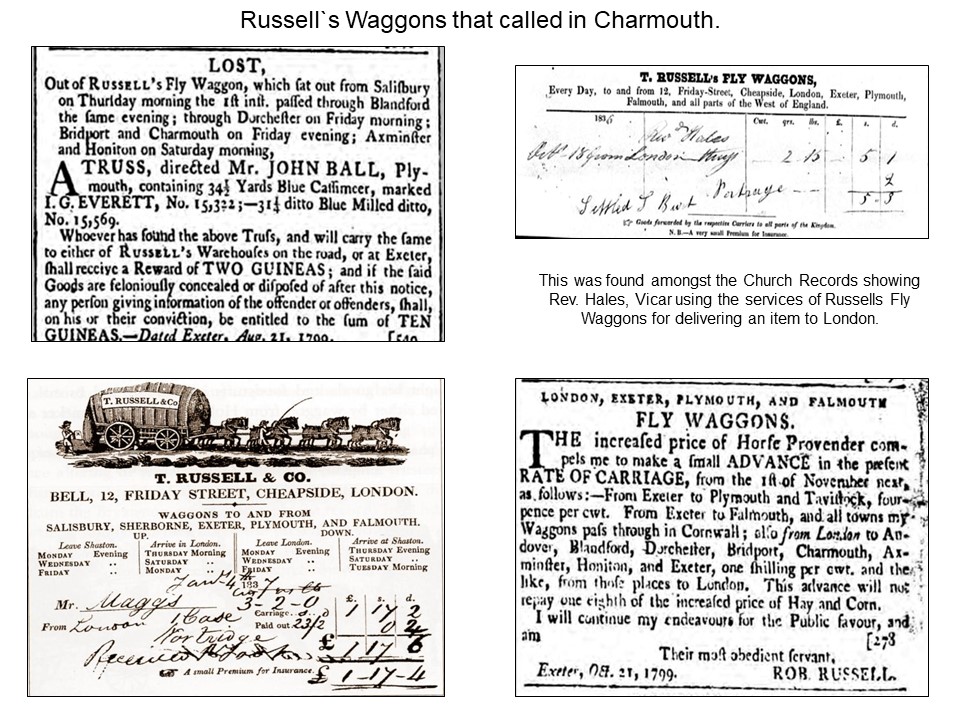 Russell`s Waggons that called in Charmouth.
LOST,
Out of RUSSELL's Fly Waggon, which ſat out from Saliſbury
on Thurſday morning the 1ſt inſt. paſſed through Blandford
the ſame evening; through Dorcheſter on Friday morning;
Bridport and Charmouth on Friday evening; Axminſter
and Honiton on Saturday morning,
A TRUSS, directed Mr. JOHN BALL, Ply-
mouth, containing 34½ Yards Blue Caſſimeer, marked
I. G. EVERETT, No. 15,322;—31¼ ditto Blue Milled ditto,
No. 15,569.
Whoever has found the above Truſs, and will carry the ſame
to either of RUSSELL's Warehouſes on the road, or at Exeter,
ſhall receive a Reward of TWO GUINEAS; and if the ſaid
Goods are feloniouſly concealed or diſpoſed of after this notice,
any perſon giving information of the offender or offenders, ſhall,
on his or their conviction, be entitled to the ſum of TEN
GUINEAS.—Dated Exeter, Aug. 21, 1799.
T. RUSSELL's FLY WAGGONS,
Every Day, to and from 12, Friday-Street, Cheapside, London, Exeter, Plymouth,
Falmouth, and all parts of the West of England.
1836 Cwt. qrs. lbs. £. s. d.
Revd Hales
Octr 18 from London 2 15 5 1
2
Settled T Burt Portrage 5 3
Goods forwarded by the respective Carriers to all parts of the Kingdom.
N.B.—A very small Premium for Insurance.
This was found amongst the Church Records showing
Rev. Hales, Vicar using the services of Russells Fly
Waggons for delivering an item to London.
T. RUSSELL & Co
T. RUSSELL & CO.
BELL, 12, FRIDAY STREET, CHEAPSIDE, LONDON.
WAGGONS TO AND FROM
SALISBURY, SHERBORNE, EXETER, PLYMOUTH, AND FALMOUTH.
UP. DOWN.
Leave Shaston. Arrive in London. Leave London. Arrive at Shaston.
MONDAY Evening THURSDAY Morning MONDAY Evening THURSDAY Evening
WEDNESDAY .. SATURDAY .. WEDNESDAY .. SATURDAY ..
FRIDAY .. MONDAY .. FRIDAY .. TUESDAY Morning
Jany 4th 1837
Mr. Maggs 3-2-0 £. s. d.
From London 1 Case Carriage 1 17 2
Paid out 23/2 0 4
£ 1 17 6
Received
A small Premium for Insurance. £ 1-17-4
LONDON, EXETER, PLYMOUTH, AND FALMOUTH
FLY WAGGONS.
THE increaſed price of Horſe Provender com-
pels me to make a ſmall ADVANCE in the preſent
RATE OF CARRIAGE, from the 1ſt of November next,
as follows:—From Exeter to Plymouth and Taviſtock, four-
pence per cwt. From Exeter to Falmouth, and all towns my
Waggons paſs through in Cornwall; alſo from London to An-
dover, Blandford, Dorcheſter, Bridport, Charmouth, Ax-
minſter, Honiton, and Exeter, one ſhilling per cwt. and the
like, from thoſe places to London. This advance will not
repay one eighth of the increaſed price of Hay and Corn.
I will continue my endeavours for the Public favour, and
am [278
Their moſt obedient ſervant,
Exeter, Oct. 21, 1799. ROB. RUSSELL.